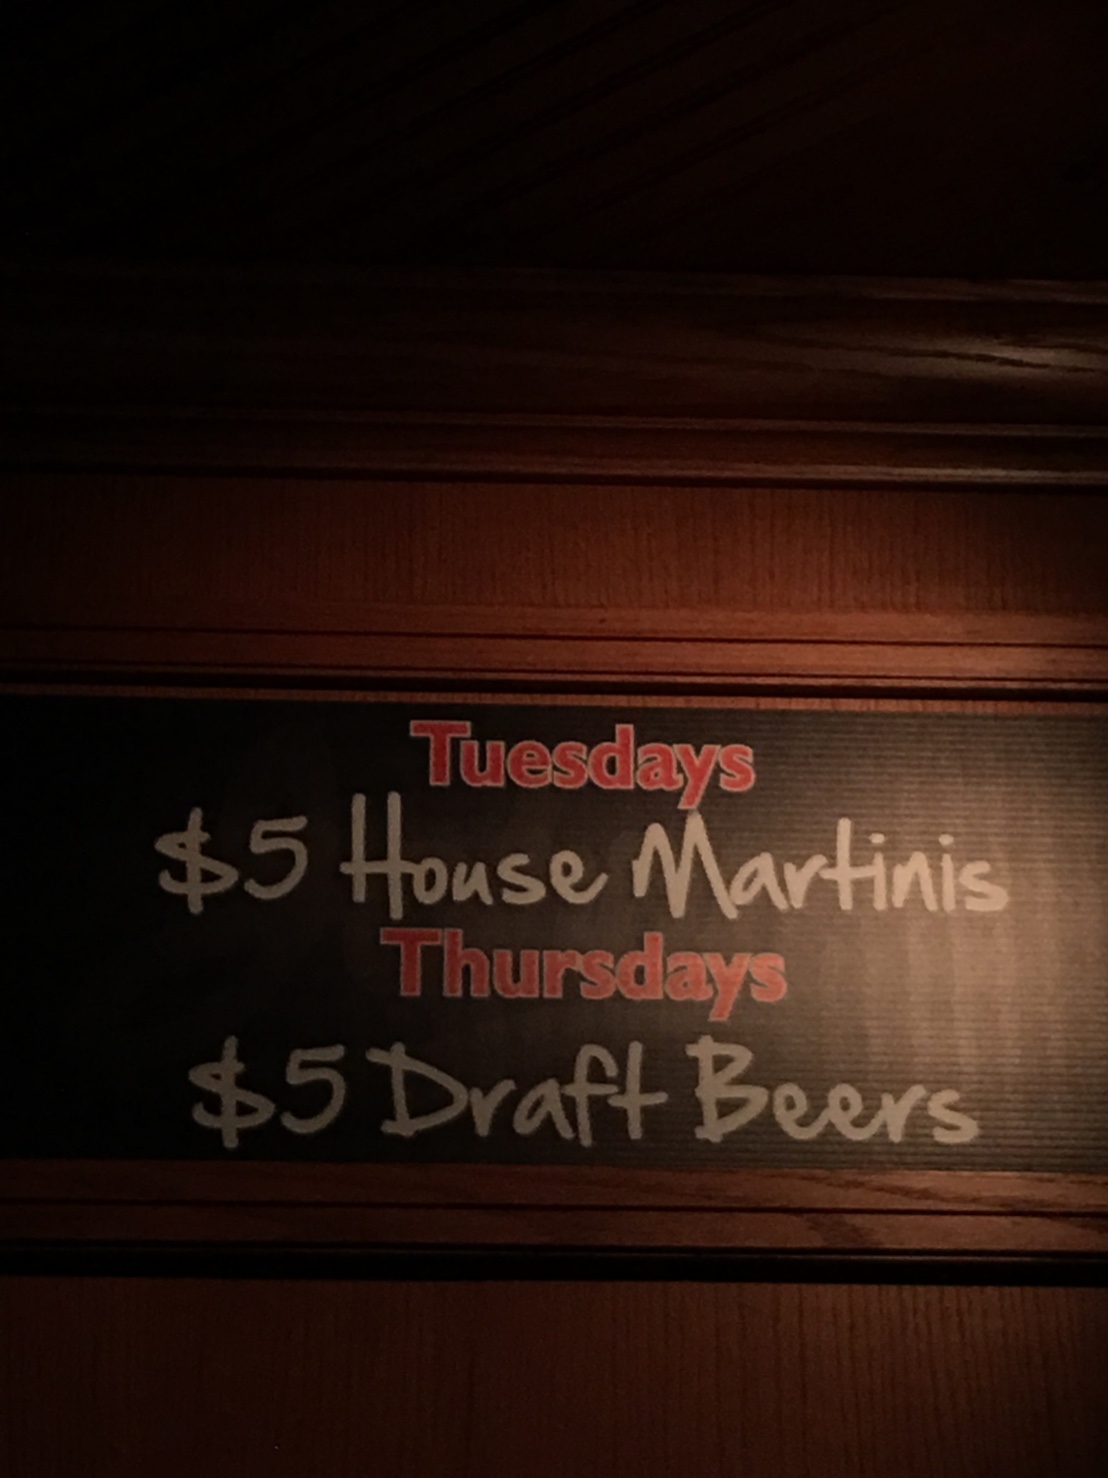 Tuesdays
$5 House Martinis
Thursdays
$5 Draft Beers